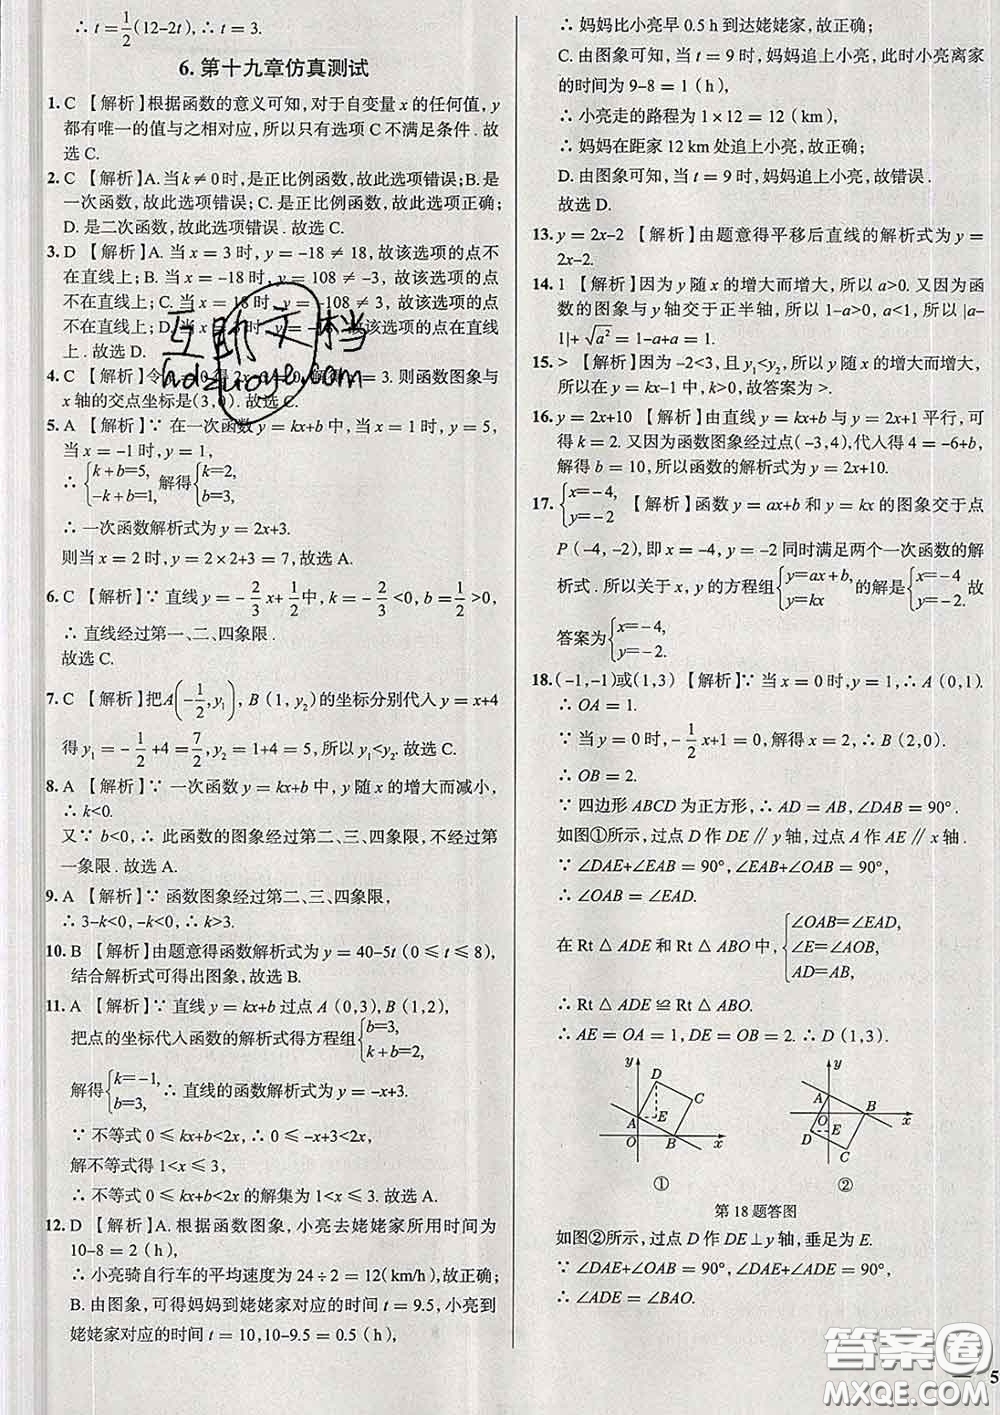 ∴ t=1/2(12-2t),∴ t=3.
6. 第十九章仿真测试
1. C 【解析】根据函数的意义可知,对于自变量 x 的任何值, y
都有唯一的值与之相对应,所以只有选项 C 不满足条件. 故
选 C.
2. C 【解析】A. 当 k≠0 时,是正比例函数,故此选项错误;B. 是
一次函数,故此选项错误;C. 是正比例函数,故此选项正确;
D. 是二次函数,故此选项错误. 故选 C.
3. D 【解析】A. 当 x = 3 时, y = -18 ≠ 18,故该选项的点不
在直线上;B. 当 x = -18 时, y = 108 ≠ -3,故该选项的点
不在直线上;C. 当 x = 18 时, y = -108 ≠ 3,故该选项的点
不在直线上;D. 当 x = 3 时, y = -18,故该选项的点在直线
上. 故选 D.
4. C 【解析】令 = 3. 则函数图象与
x 轴的交点坐标是(3,0). 故选 C.
5. A 【解析】∵ 在一次函数 y = kx+b 中,当 x = 1 时, y = 5,
当 x = -1 时, y = 1,
∴ {k+b=5, -k+b=1, 解得 {k=2, b=3,
∴ 一次函数解析式为 y = 2x+3.
则当 x = 2 时, y = 2×2+3 = 7,故选 A.
6. C 【解析】∵ 直线 y = -2/3 x+1/2 中, k = -2/3 <0, b = 1/2 >0,
∴ 直线经过第一、二、四象限.
故选 C.
7. C 【解析】把 A(-1/2, y₁), B(1, y₂) 的坐标分别代人 y = x+4
得 y₁ = -1/2+4 = 7/2, y₂ = 1+4 = 5,所以 y₁<y₂. 故选 C.
8. A 【解析】∵ 一次函数 y = kx+b 中, y 随 x 的增大而减小,
∴ k<0.
又∵ b<0,∴ 此函数的图象经过第二、三、四象限,不经过第
一象限. 故选 A.
9. A 【解析】∵ 函数图象经过第二、三、四象限,
∴ 3-k<0,-k<0,∴ k>3.
10. B 【解析】由题意得函数解析式为 y = 40-5t(0 ≤ t ≤ 8),
结合解析式可得出图象,故选 B.
11. A 【解析】∵ 直线 y = kx+b 过点 A(0,3), B(1,2),
把点的坐标代人函数的解析式得方程组 {b=3, k+b=2,
解得 {k=-1, b=3, ∴ 直线的函数解析式为 y = -x+3.
∵ 不等式 0 ≤ kx+b<2x,∴ 0 ≤ -x+3<2x,
解不等式得 1<x ≤ 3,
∴ 不等式 0 ≤ kx+b<2x 的解集为 1<x ≤ 3. 故选 A.
12. D 【解析】A. 根据函数图象,小亮去姥姥家所用时间为
10-8 = 2(h),
∴ 小亮骑自行车的平均速度为 24÷2 = 12(km/h),故正确;
B. 由图象,可得妈妈到姥姥家对应的时间 t = 9.5,小亮到
姥姥家对应的时间 t = 10,10-9.5 = 0.5(h),
∴ 妈妈比小亮早 0.5 h 到达姥姥家,故正确;
C. 由图象可知,当 t = 9 时,妈妈追上小亮,此时小亮离家
的时间为 9-8 = 1(h),
∴ 小亮走的路程为 1×12 = 12(km),
∴ 妈妈在距家 12 km 处追上小亮,故正确;
D. 由图象可知,当 t = 9 时,妈妈追上小亮,故错误.
故选 D.
13. y = 2x-2 【解析】由题意得平移后直线的解析式为 y =
2x-2.
14. 1 【解析】因为 y 随 x 的增大而增大,所以 a>0. 又因为函
数的图象与 y 轴交于正半轴,所以 1-a>0, a<1,所以 |a-
1|+√a² = 1-a+a = 1.
15. > 【解析】因为 -2<3,且 y₁<y₂,所以 y 随 x 的增大而增大,
所以在 y = kx-1 中, k>0,故答案为 >.
16. y = 2x+10 【解析】由直线 y = kx+b 与 y = 2x+1 平行,可
得 k = 2. 又因为函数图象经过点(-3,4),代人得 4 = -6+b,
解得 b = 10,所以函数的解析式为 y = 2x+10.
17. {x=-4, y=-2 【解析】函数 y = ax+b 和 y = kx 的图象交于点
P(-4,-2),即 x = -4, y = -2 同时满足两个一次函数的解
析式. 所以关于 x, y 的方程组 {y=ax+b, y=kx 的解是 {x=-4 y=-2. 故
答案为 {x=-4, y=-2.
18. (-1,-1)或(1,3) 【解析】∵ 当 x = 0 时, y = 1,∴ A(0,1).
∴ OA = 1.
∵ 当 y = 0 时,-1/2 x+1 = 0,解得 x = 2,∴ B(2,0).
∴ OB = 2.
∵ 四边形 ABCD 为正方形,∴ AD = AB,∠DAB = 90°.
如图①所示,过点 D 作 DE∥y 轴,过点 A 作 AE∥x 轴.
∵ ∠DAE+∠EAB = 90°,∠EAB+∠OAB = 90°,
∴ ∠OAB = ∠EAD.
在 Rt△ADE 和 Rt△ABO 中, {∠OAB=∠EAD, ∠E=∠AOB, AD=AB,
∴ Rt△ADE≌Rt△ABO.
∴ AE = OA = 1,DE = OB = 2.∴ D(1,3).
y D C A E O B x
①
y A B O x D E C
②
第 18 题答图
如图②所示,过点 D 作 DE⊥y 轴,垂足为 E.
∵ ∠DAE+∠OAB = 90°,∠DAE+∠ADE = 90°,
∴ ∠ADE = ∠BAO.
互助文档
hdzuoye.com
答案圈
MXQE.COM
5